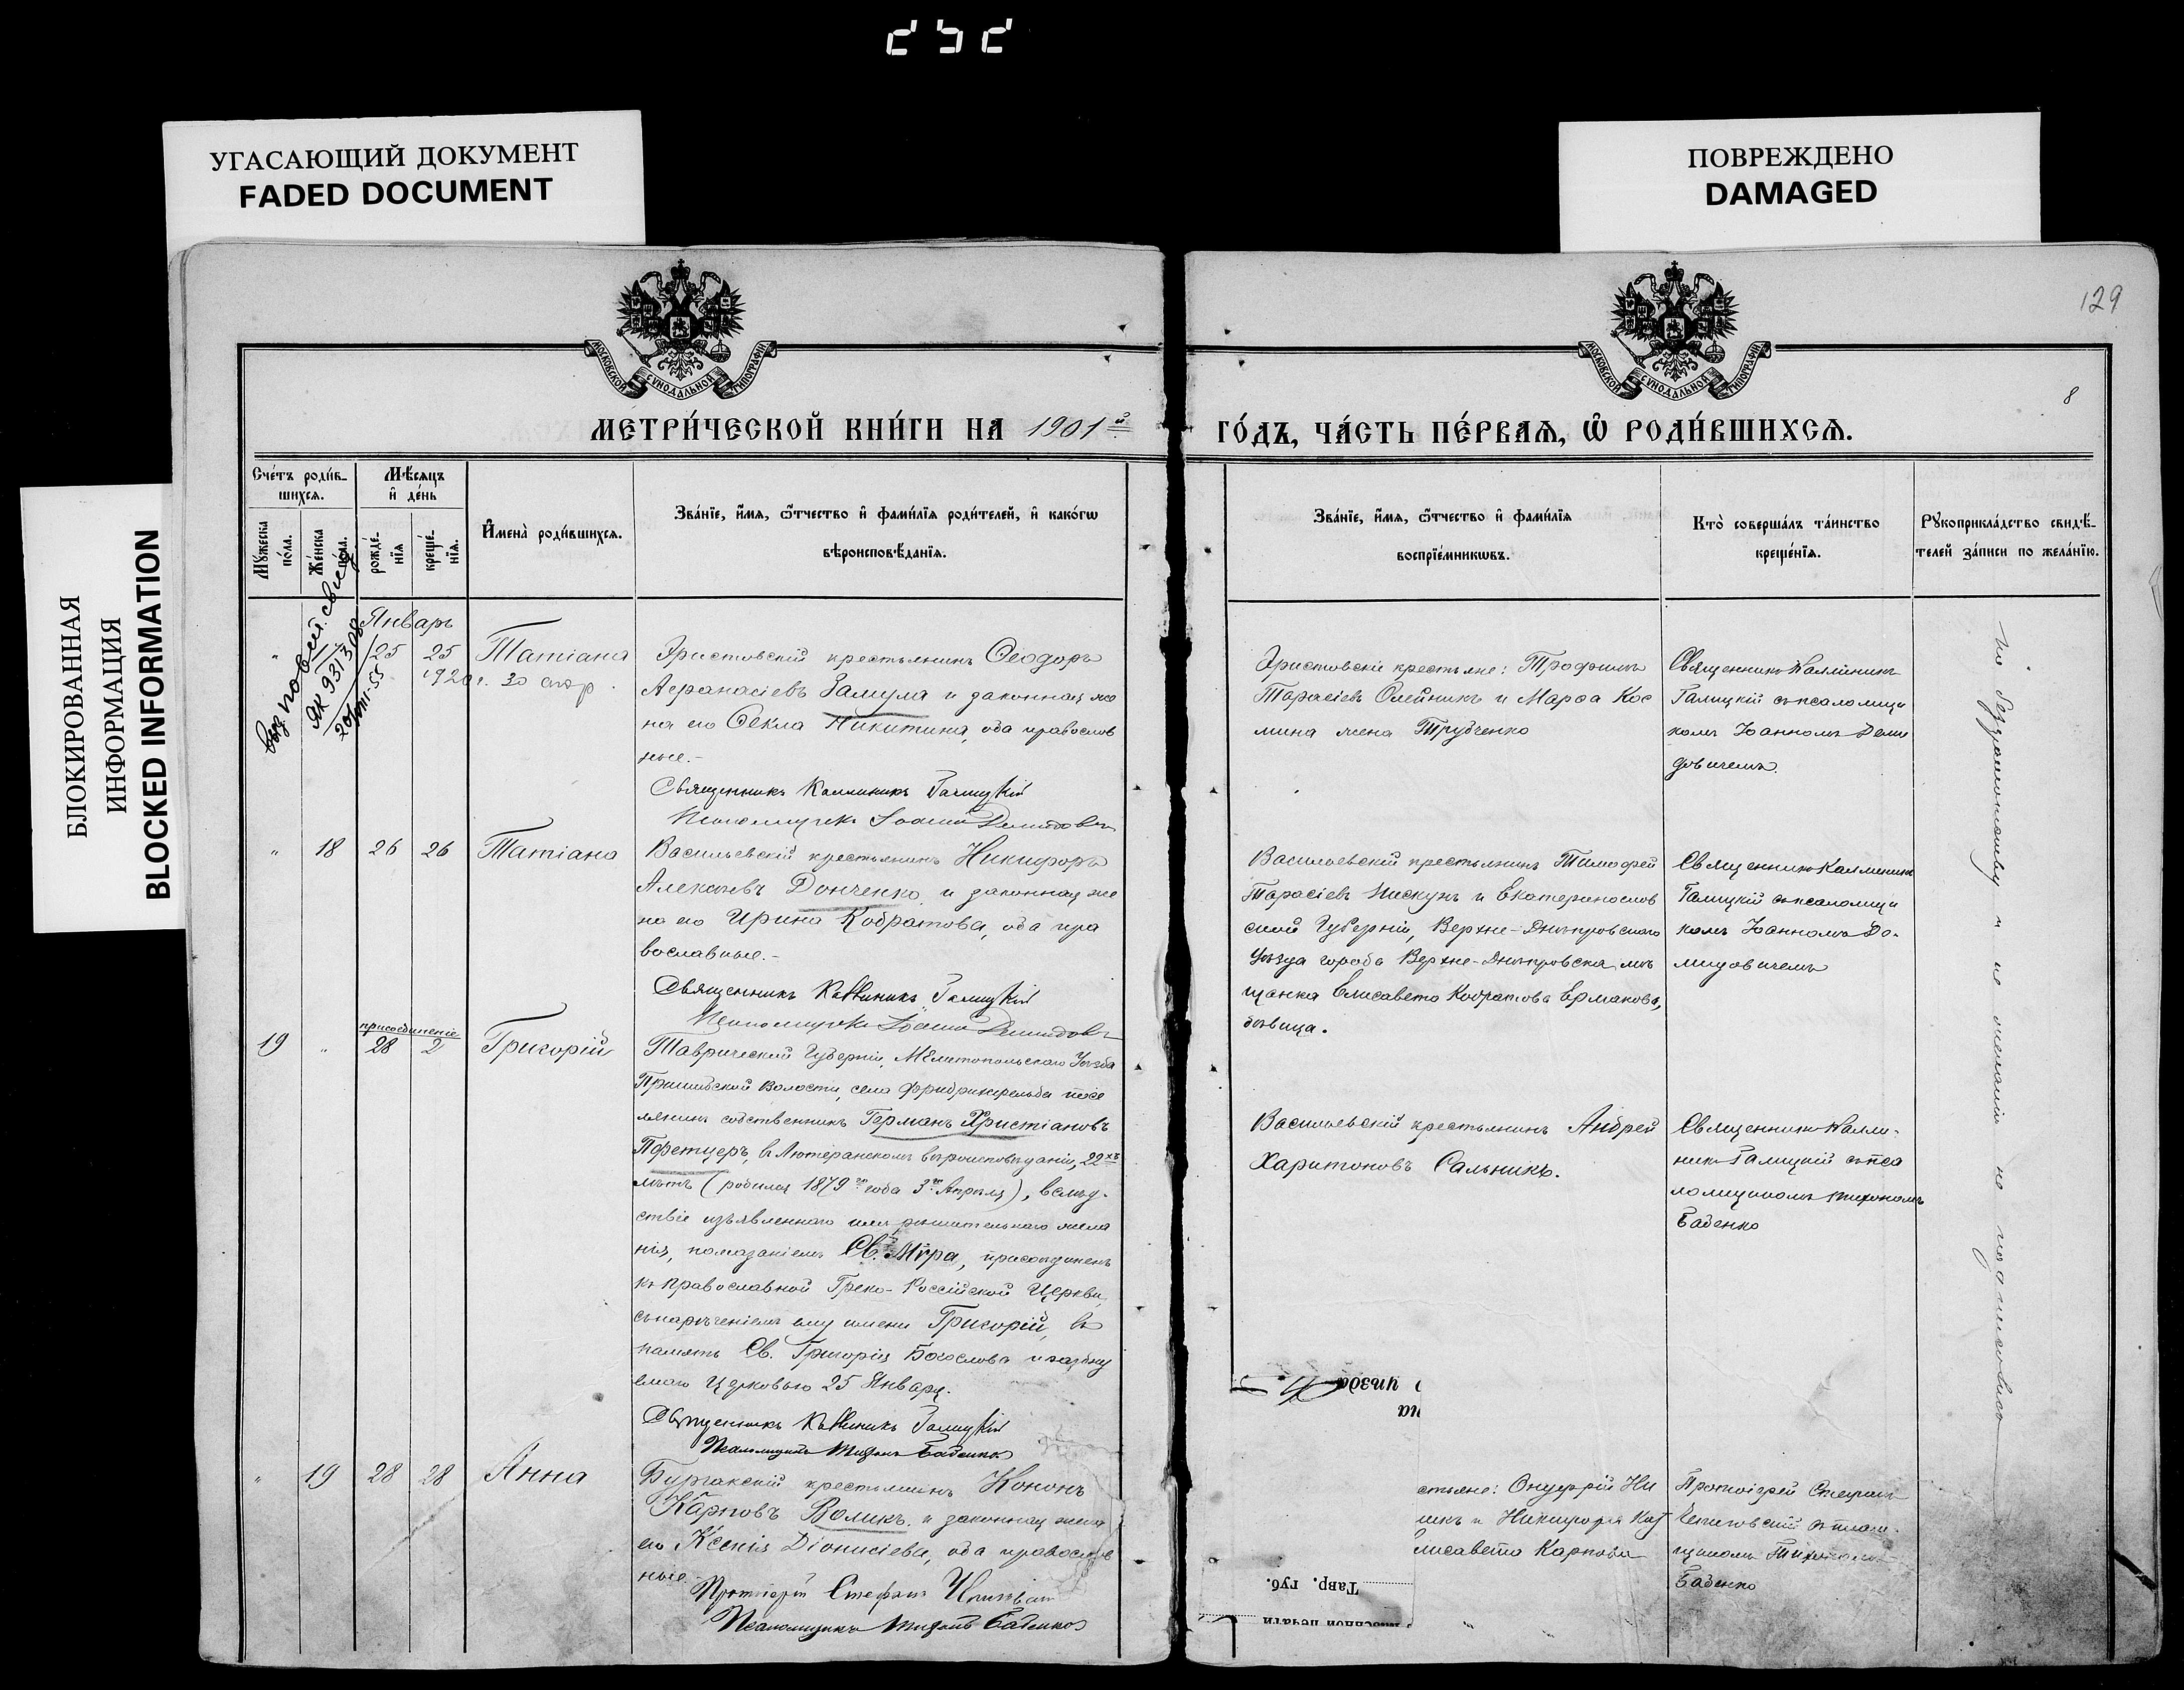 УГАСАЮЩИЙ ДОКУМЕНТ
FADED DOCUMENT
ПОВРЕЖДЕНО
DAMAGED
БЛОКИРОВАННАЯ
ИНФОРМАЦИЯ
BLOCKED INFORMATION
129
8
МОСКОВСКОЙ СѴНОДАЛЬНОЙ ТИПОГРАФІИ
МОСКОВСКОЙ СѴНОДАЛЬНОЙ ТИПОГРАФІИ
МЕТРИ́ЧЕСКОЙ КНИ́ГИ НА 1901й
ГО́ДЪ, ЧА́СТЬ ПЕ́РВАѦ, Ѡ҆ РОДИ́ВШИХСѦ.
Сче́тъ роди́в-
шихсѧ.
Мѣ́сѧцъ
и҆ де́нь
Мꙋ́жеска
по́ла.
Же́нска
по́ла.
рожде́-
нїѧ
креще́-
нїѧ.
И҆мена̀ роди́вшихсѧ.
Зва́нїе, и҆́мѧ, ѻ҆́тчество и҆ фами́лїѧ роди́телей, и҆ како́гѡ
вѣроисповѣ́данїѧ.
Зва́нїе, и҆́мѧ, ѻ҆́тчество и҆ фами́лїѧ
воспрїе́мникѡвъ.
Кто̀ соверша́лъ та́инство
креще́нїѧ.
Рꙋкоприкла́дство свидѣ́-
телей за́писи по жела́нїю.
Январь
" 25 25 Татіана
1920 г. 30 апр.
Эристовскій крестьянинъ Ѳеодоръ
Аѳанасіевъ Замула и законная же
на его Ѳекла Никитина, оба православ
ные.-
Священникъ Каллиникъ Галицкій
Псаломщикъ Іоаннъ Демидовичъ
Эристовскіе крестьяне: Трофимъ
Тарасіевъ Олейникъ и Марѳа Кос
мина жена Трубченко
Священникъ Каллиникъ
Галицкій съ псаломщи
комъ Іоанномъ Деми
довичемъ.
" 18 26 26 Татіана
Васильевскій крестьянинъ Никифоръ
Алексіевъ Донченко и законная же
на его Ирина Кодратова, оба пра
вославные.-
Священникъ Каллиникъ Галицкій
Псаломщикъ Іоаннъ Демидовичъ
Васильевскій крестьянинъ Тимофей
Тарасіевъ Пискунъ и Екатеринослав
ской Губерніи, Верхне-Днѣпровскаго
Уѣзда города Верхне-Днѣпровска мѣ
щанка Елисавета Кодратова Ермакова,
дѣвица.
Священникъ Каллиникъ
Галицкій съ псаломщи
комъ Іоанномъ Де-
мидовичемъ
присоединеніе
19 " 28 2 Григорій
Таврической Губерніи, Мелитопольскаго Уѣзда
Пришибской Волости, села Фридрихсфельда посе
лянинъ собственникъ Германъ Христіановъ
Пфетцеръ, въ Лютеранскомъ вѣроисповѣданіи, 22хъ
лѣтъ (родился 1879го года 3го Апрѣля), вслѣд-
ствіе изъявленнаго имъ рѣшительнаго жела
нія, помазаніемъ Св. Мѵра, присоединенъ
къ Православной Греко-Россійской Церкви,
съ нареченіемъ ему имени Григорій, въ
память Св. Григорія Богослова празну
емаго Церковью 25 Января.
Священникъ Каллиникъ Галицкій
Псаломщикъ Тихонъ Баденко
Васильевскій крестьянинъ Андрей
Харитоновъ Сальникъ.
Священникъ Калли-
никъ Галицкій съ пса
ломщикомъ Тихономъ
Баденко
" 19 28 28 Анна
Бурчакскій крестьянинъ Кононъ
Карповъ Воликъ и законная жена
его Ксенія Діонисіева, оба православ
ные
Протоіерей Стефанъ
Псаломщикъ Тихонъ Баденко
уѣзда
на
Тавр. губ.
печати
стьяне: Онуфрій Ни
Елисавета Карпова
Протоіерей Стефанъ
щикомъ Тихономъ
Баденко